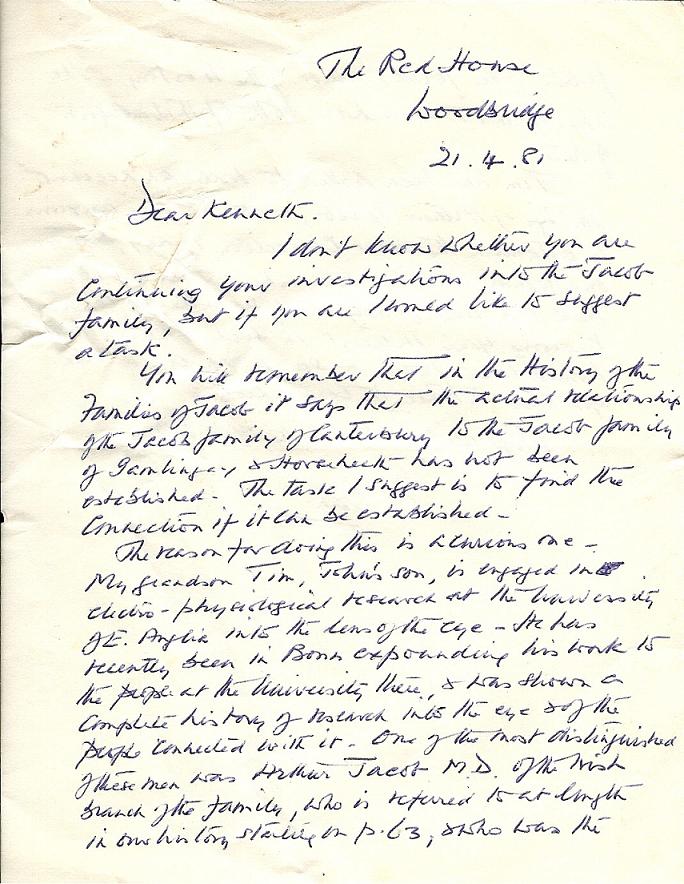 The Red House
Woodbridge
21.4.81
Dear Kenneth.
I don't know whether you are
continuing your investigations into the Jacob
family, but if you are I would like to suggest
a task.
You will remember that in the History of the
Families of Jacob it says that the actual relationship
of the Jacob family of Canterbury to the Jacob family
of Gamlingay & Horseheath has not been
established - The task I suggest is to find the
connection if it can be established -
The reason for doing this is a curious one -
My grandson Tim, John's son, is engaged in
electro-physiological research at the University
of E. Anglia into the lens of the eye - He has
recently been in Bonn expounding his work to
the people at the University there, & was shown a
complete history of research into the eye & of the
people connected with it - One of the most distinguished
of these men was Arthur Jacob M.D. of the Irish
branch of the family, who is referred to at length
in our history starting on p. 63, & who was the